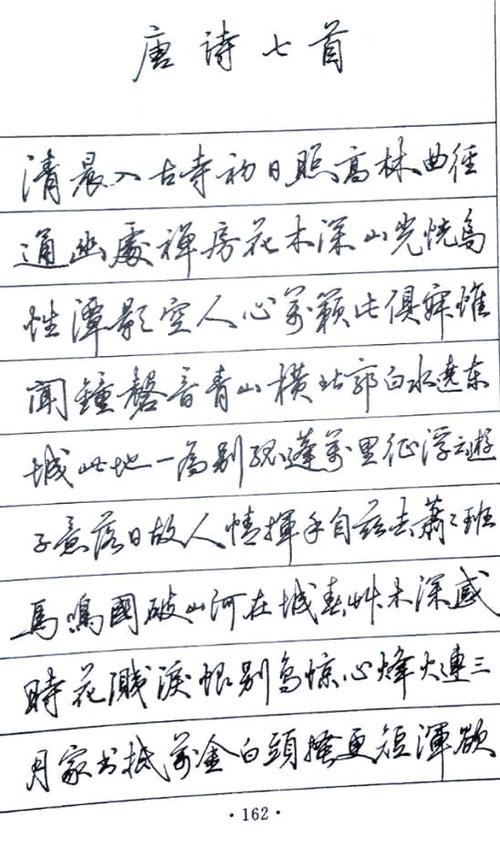 唐诗七首
清晨入古寺初日照高林曲径
通幽處禅房花木深山光悦鸟
性潭影空人心万籁此俱寂惟
闻鐘磬音青山横北郭白水遶东
城此地一為别孤蓬万里征浮云游
子意落日故人情揮手自兹去蕭々班
馬鳴國破山河在城春艸木深感
時花溅淚恨别鸟惊心烽火連三
月家书抵万金白頭搔更短渾欲
·162·